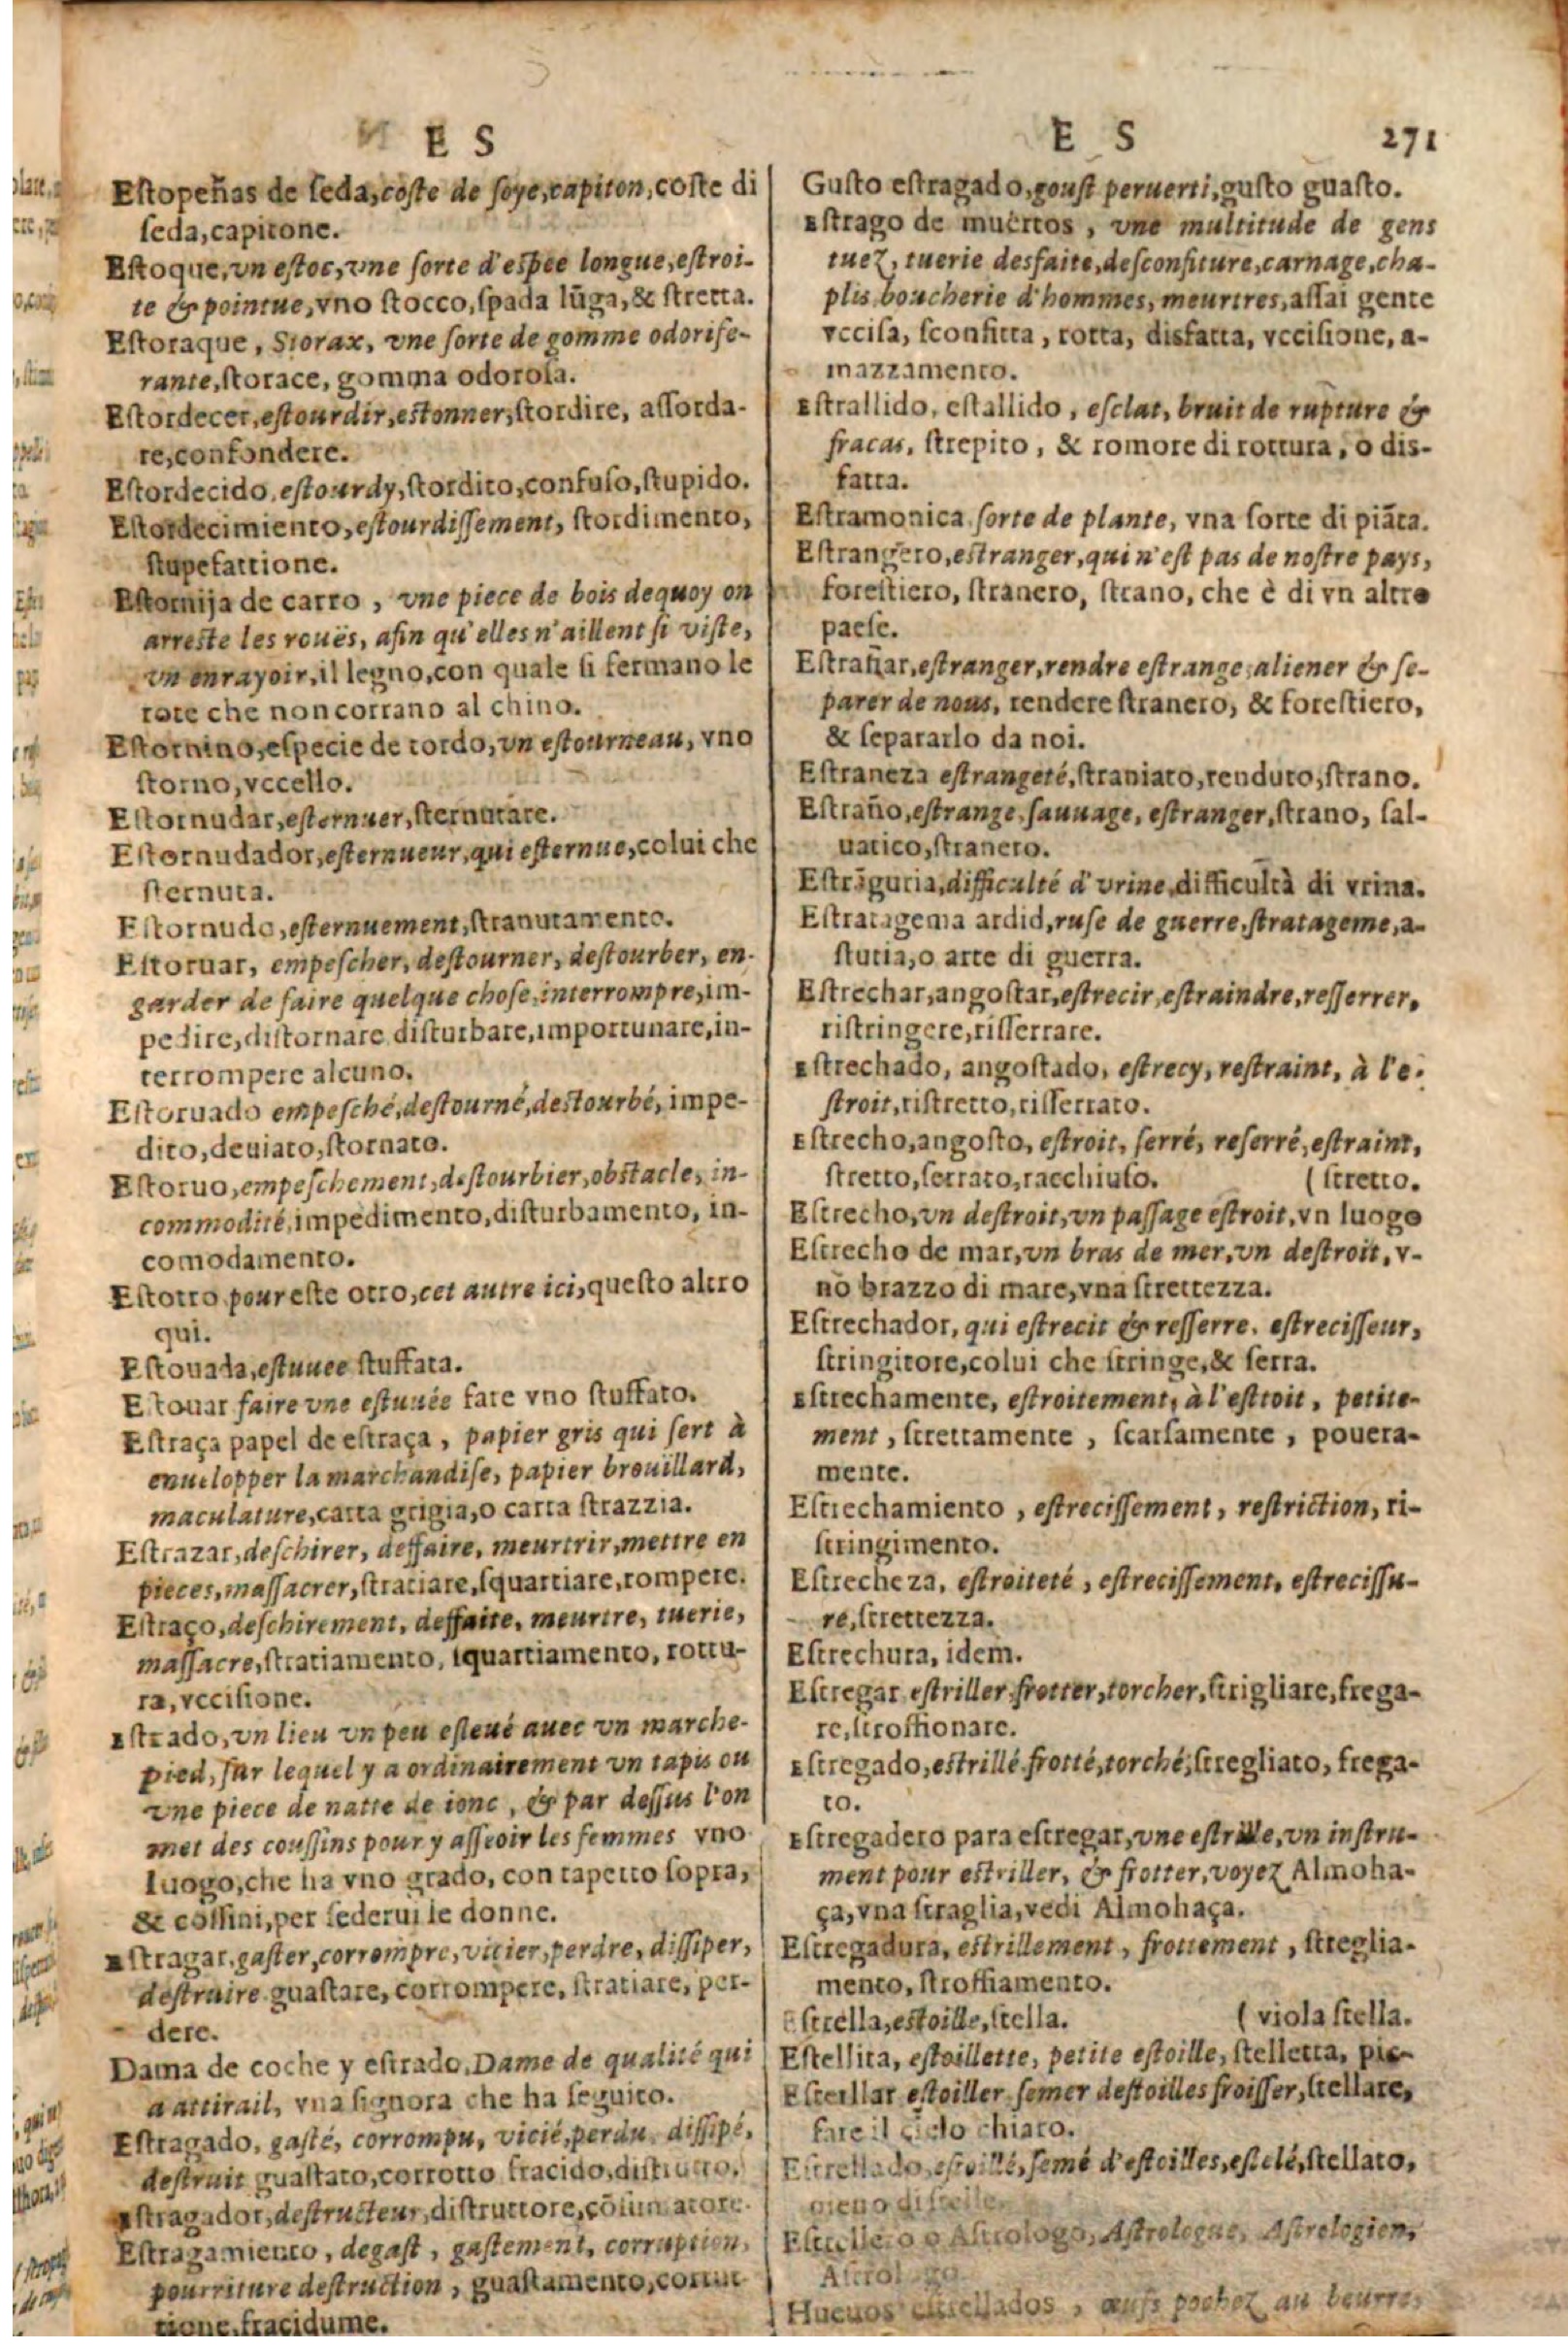 E S
Estopeñas de seda, coste de soye, capiton, coste di
seda, capitone.
Estoque, vn estoc, vne sorte d'espee longue, estroi-
te & pointue, vno stocco, spada lūga, & stretta.
Estoraque, Storax, vne sorte de gomme odorife-
rante, storace, gomma odorosa.
Estordecer, estourdir, estonner, stordire, assorda-
re, confondere.
Estordecido, estourdy, stordito, confuso, stupido.
Estordecimiento, estourdissement, stordimento,
stupefattione.
Estornija de carro, vne piece de bois dequoy on
arreste les rouës, afin qu'elles n'aillent si viste,
vn enrayoir, il legno, con quale si fermano le
rote che non corrano al chino.
Estornino, especie de tordo, vn estourneau, vno
storno, vccello.
Estornudar, esternuer, sternutare.
Estornudador, esternueur, qui esternue, colui che
sternuta.
Estornudo, esternuement, stranutamento.
Estoruar, empescher, destourner, destourber, en-
garder de faire quelque chose, interrompre, im-
pedire, distornare disturbare, importunare, in-
terrompere alcuno.
Estoruado empesché, destourné, destourbé, impe-
dito, deuiato, stornato.
Estoruo, empeschement, destourbier, obstacle, in-
commodité, impedimento, disturbamento, in-
comodamento.
Estotro pour este otro, cet autre ici, questo altro
qui.
Estouada, estuuee stuffata.
Estouar faire vne estuuée fare vno stuffato.
Estraça papel de estraça, papier gris qui sert à
enuelopper la marchandise, papier brouillard,
maculature, carta grigia, o carta strazzia.
Estrazar, deschirer, deffaire, meurtrir, mettre en
pieces, massacrer, stratiare, squartiare, rompere.
Estraço, deschirement, deffaite, meurtre, tuerie,
massacre, stratiamento, squartiamento, rottu-
ra, vccisione.
Estrado, vn lieu vn peu esleué auec vn marche-
pied, sur lequel y a ordinairement vn tapis ou
vne piece de natte de ionc, & par dessus l'on
met des coussins pour y asseoir les femmes vno
luogo, che ha vno grado, con tapetto sopra,
& cossini, per sederui le donne.
Estragar, gaster, corrompre, vicier, perdre, dissiper,
destruire guastare, corrompere, stratiare, per-
dere.
Dama de coche y estrado, Dame de qualité qui
a attirail, vna signora che ha seguito.
Estragado, gasté, corrompu, vicié, perdu, dissipé,
destruit guastato, corrotto fracido, distrutto.
Estragador, destructeur, distruttore, cōsumatore.
Estragamiento, degast, gastement, corruption,
pourriture destruction, guastamento, corrut
tione, fracidume.
E S 271
Gusto estragado, goust peruerti, gusto guasto.
Estrago de muertos, vne multitude de gens
tuez, tuerie desfaite, desconfiture, carnage, cha-
plis boucherie d'hommes, meurtres, assai gente
vccisa, sconfitta, rotta, disfatta, vccisione, a-
mazzamento.
Estrallido, estallido, esclat, bruit de rupture &
fracas, strepito, & romore di rottura, o dis-
fatta.
Estramonica sorte de plante, vna sorte di piāta.
Estrangero, estranger, qui n'est pas de nostre pays,
forestiero, stranero, strano, che è di vn altro
paese.
Estrañar, estranger, rendre estrange, aliener & se-
parer de nous, rendere stranero, & forestiero,
& separarlo da noi.
Estraneza estrangeté, straniato, renduto, strano.
Estraño, estrange, sauuage, estranger, strano, sal-
uatico, stranero.
Estrāguria, difficulté d'vrine, difficultà di vrina.
Estratagema ardid, ruse de guerre, stratageme, a-
stutia, o arte di guerra.
Estrechar, angostar, estrecir, estraindre, resserrer,
ristringere, risserrare.
Estrechado, angostado, estrecy, restraint, à l'e-
stroit, ristretto, risserrato.
Estrecho, angosto, estroit, serré, reserré, estraint,
stretto, serrato, racchiuso. (stretto.
Estrecho, vn destroit, vn passage estroit, vn luogo
Estrecho de mar, vn bras de mer, vn destroit, v-
no brazzo di mare, vna strettezza.
Estrechador, qui estrecit & resserre, estrecisseur,
stringitore, colui che stringe, & serra.
Estrechamente, estroitement, à l'estroit, petite-
ment, strettamente, scarsamente, pouera-
mente.
Estrechamiento, estrecissement, restriction, ri-
stringimento.
Estrecheza, estroiteté, estrecissement, estrecissu-
re, strettezza.
Estrechura, idem.
Estregar estriller frotter, torcher, strigliare, frega-
re, stroffionare.
Estregado, estrillé frotté, torché, stregliato, frega-
to.
Estregadero para estregar, vne estrille, vn instru-
ment pour estriller, & frotter, voyez Almoha-
ça, vna straglia, vedi Almohaça.
Estregadura, estrillement, frottement, streglia-
mento, stroffiamento.
Estrella, estoille, stella. (viola stella.
Estellita, estoillette, petite estoille, stelletta, pic-
Esterllar estoiller semer destoilles froisser, stellare,
fare il cielo chiaro.
Estrellado, estoillé, semé d'estoilles, estelé, stellato,
pieno di stelle.
Estrellero o Astrologo, Astrologue, Astrologien,
Astrologo.
Hueuos estrellados, œufs pochez au beurre,